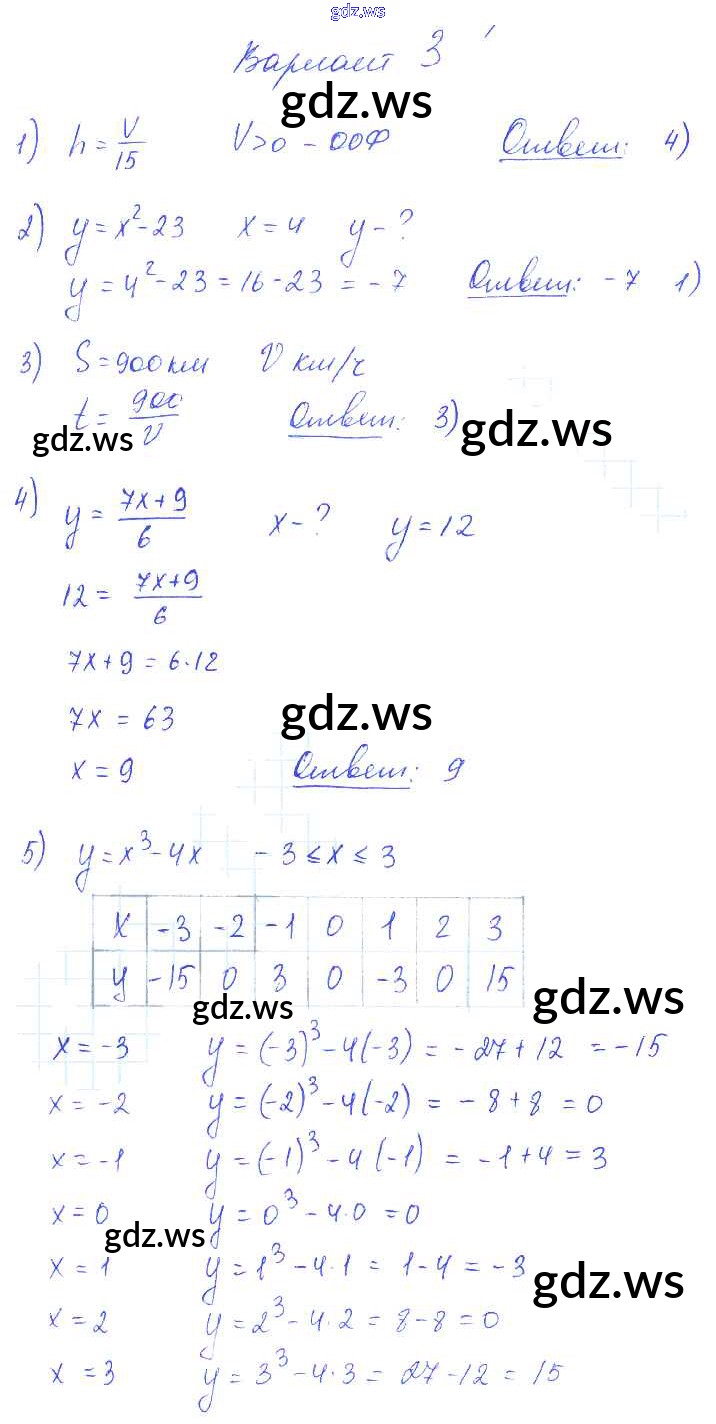 gdz.ws
Вариант 3
gdz.ws
1) h = V/15 V>0 - ООФ Ответ: 4)
2) y = x² - 23 x = 4 y - ?
y = 4² - 23 = 16 - 23 = -7 Ответ: -7 1)
3) S = 900 км V км/ч
t = 900/V Ответ: 3)
gdz.ws gdz.ws
4) y = (7x+9)/6 x - ? y = 12
12 = (7x+9)/6
7x+9 = 6·12
7x = 63
gdz.ws
x = 9 Ответ: 9
5) y = x³ - 4x -3 ≤ x ≤ 3
x -3 -2 -1 0 1 2 3
y -15 0 3 0 -3 0 15
gdz.ws gdz.ws
x = -3 y = (-3)³ - 4(-3) = -27 + 12 = -15
x = -2 y = (-2)³ - 4(-2) = -8 + 8 = 0
x = -1 y = (-1)³ - 4(-1) = -1 + 4 = 3
x = 0 y = 0³ - 4·0 = 0
gdz.ws
x = 1 y = 1³ - 4·1 = 1 - 4 = -3
gdz.ws
x = 2 y = 2³ - 4·2 = 8 - 8 = 0
x = 3 y = 3³ - 4·3 = 27 - 12 = 15